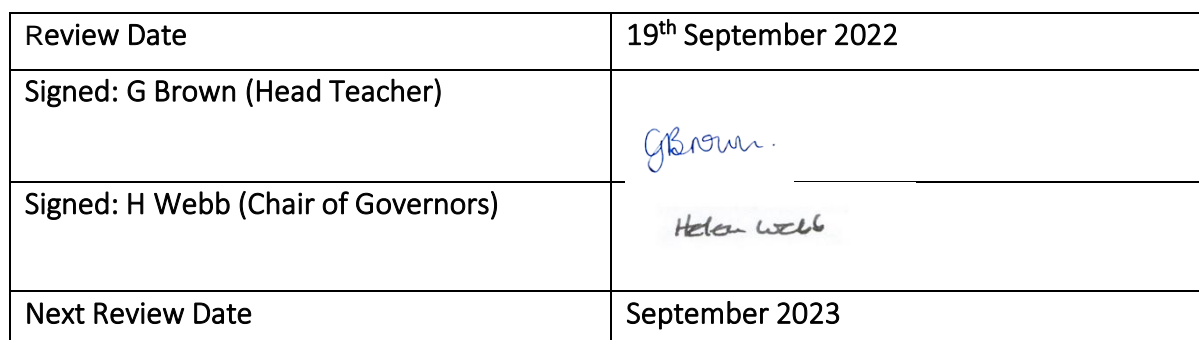 Review Date 19th September 2022
Signed: G Brown (Head Teacher)
GBrown.
Signed: H Webb (Chair of Governors)
Helen Webb
Next Review Date September 2023